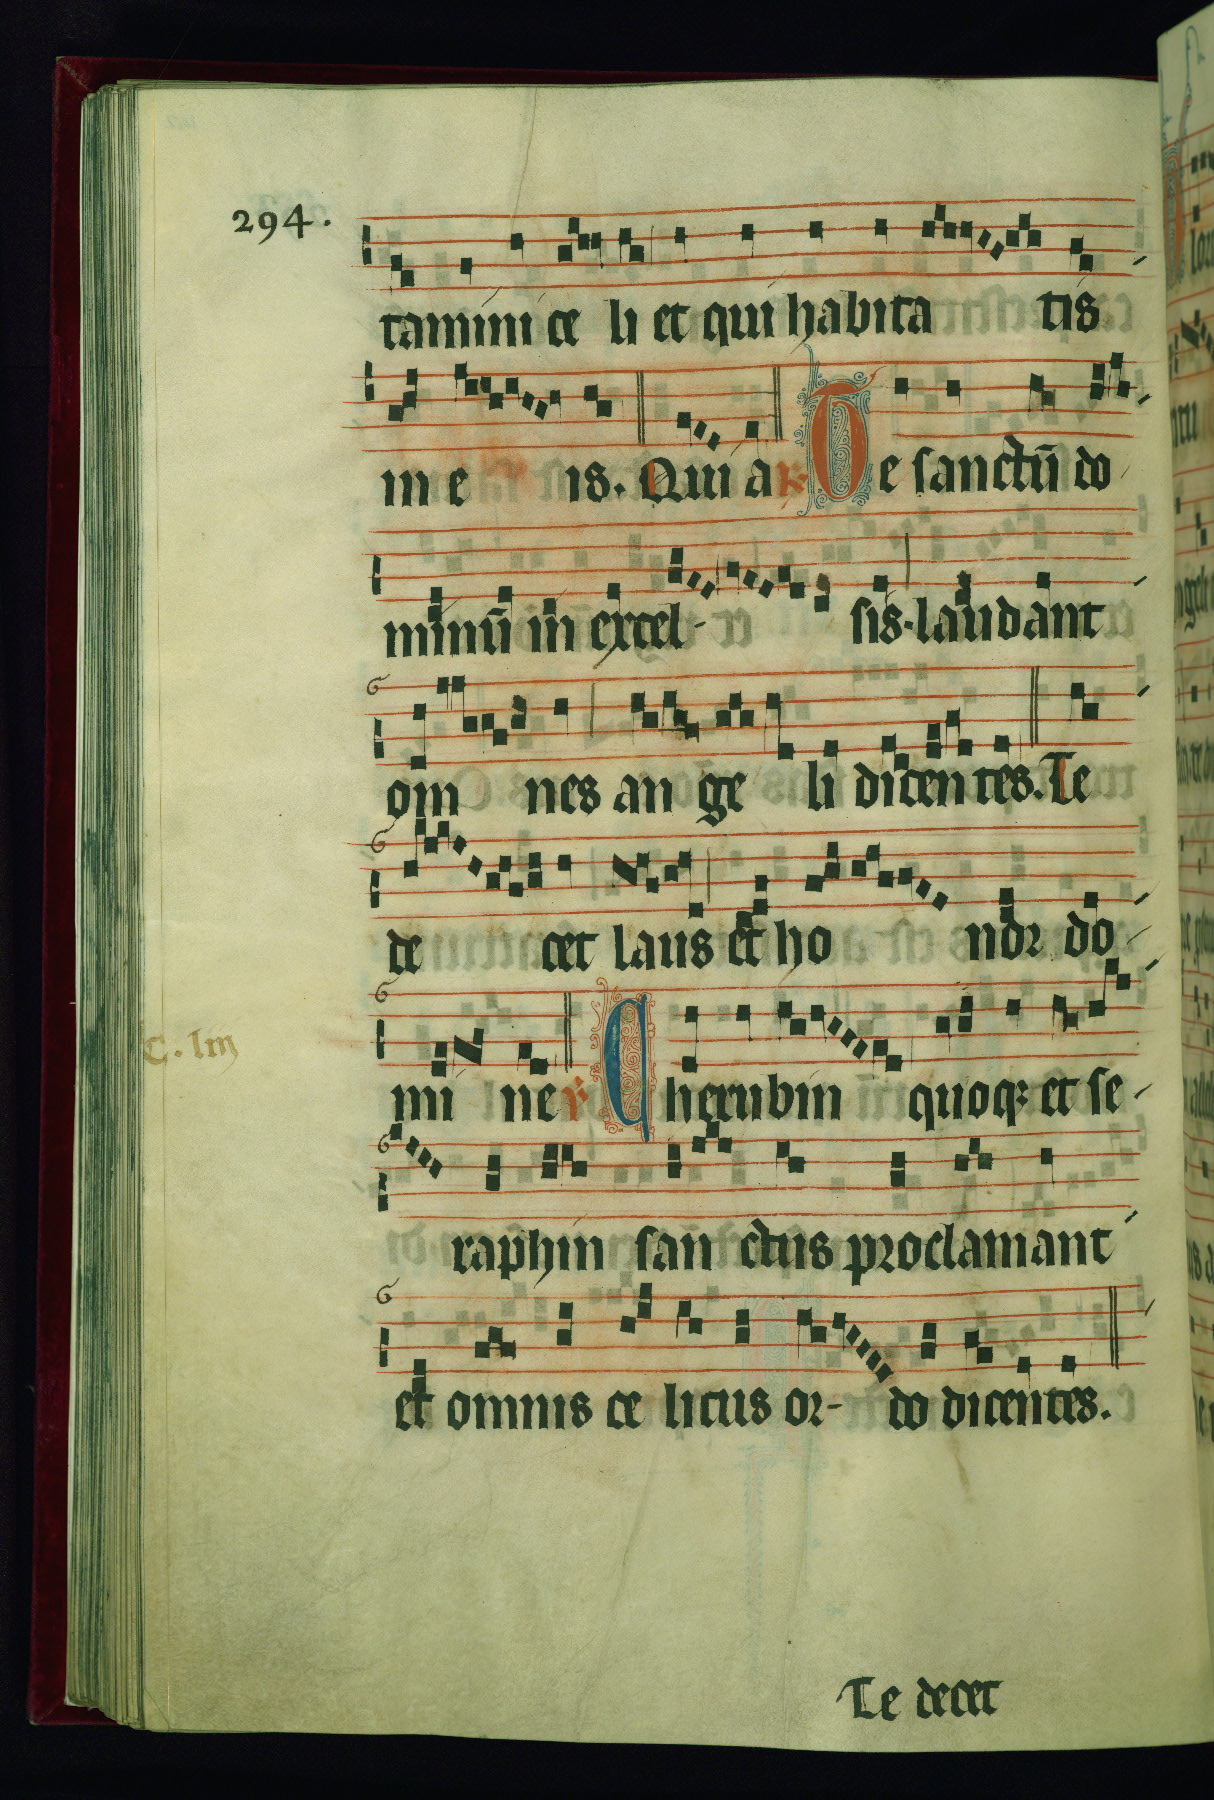 294.
tamini ce li et qui habita tis
in e is. Qui a ℟ Te sanctū do
minū in excel- sis. laudant
om nes an ge li dicen tes. Te
de cet laus et ho nor do
mi ne ℟ Cherubin quoqꝫ et se
raphin san ctus proclamant
et omnis ce licus or- do dicentes.
C. Im
Te decet